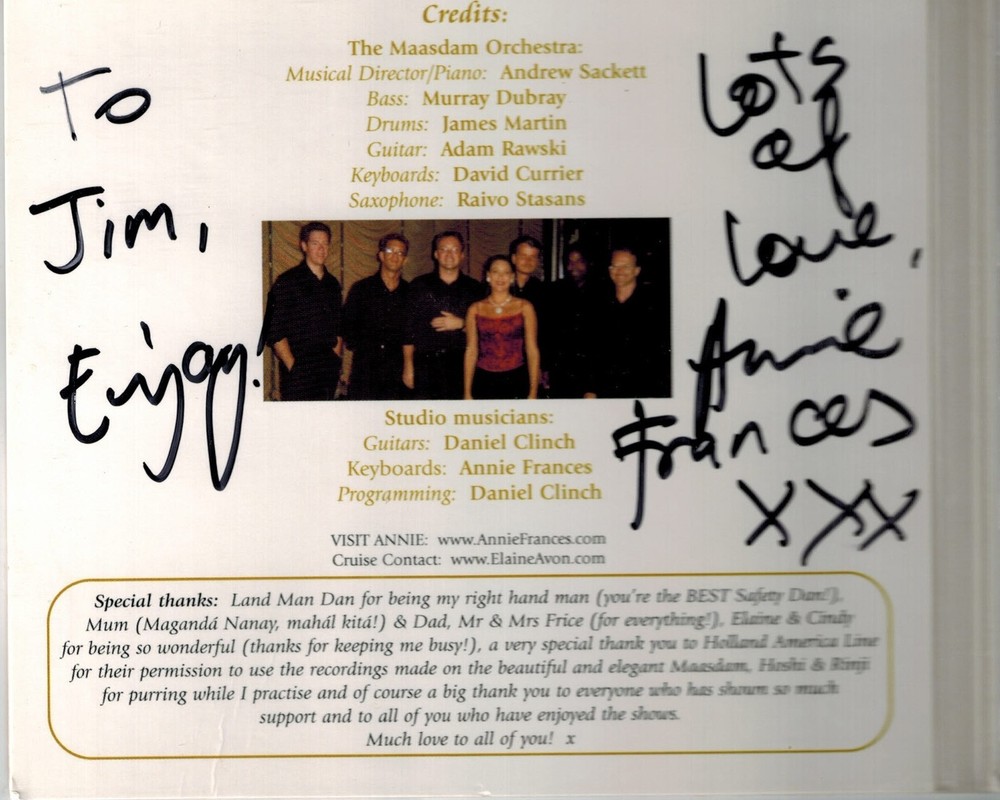 Credits:
The Maasdam Orchestra:
Musical Director/Piano: Andrew Sackett
Bass: Murray Dubray
Drums: James Martin
Guitar: Adam Rawski
Keyboards: David Currier
Saxophone: Raivo Stasans
To
Jim,
Enjoy!
Lots
of
love,
Annie
Frances
xxx
Studio musicians:
Guitars: Daniel Clinch
Keyboards: Annie Frances
Programming: Daniel Clinch
VISIT ANNIE: www.AnnieFrances.com
Cruise Contact: www.ElaineAvon.com
Special thanks: Land Man Dan for being my right hand man (you're the BEST Safety Dan!),
Mum (Magandá Nanay, mahál kitá!) & Dad, Mr & Mrs Frice (for everything!), Elaine & Cindy
for being so wonderful (thanks for keeping me busy!), a very special thank you to Holland America Line
for their permission to use the recordings made on the beautiful and elegant Maasdam, Hoshi & Rimji
for purring while I practise and of course a big thank you to everyone who has shown so much
support and to all of you who have enjoyed the shows.
Much love to all of you! x